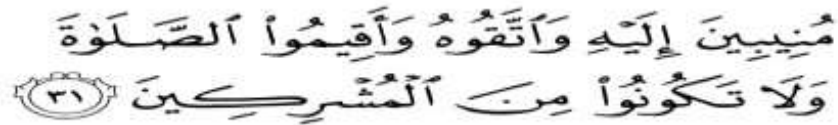 مُنِيبِينَ إِلَيْهِ وَٱتَّقُوهُ وَأَقِيمُوا۟ ٱلصَّلَوٰةَ
وَلَا تَكُونُوا۟ مِنَ ٱلْمُشْرِكِينَ ٣١